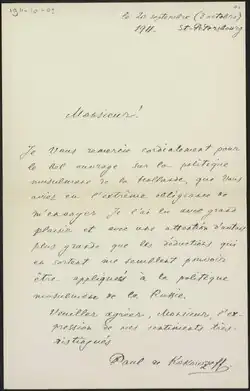 le 20 septembre (3 octobre)
1911. St-Pétersbourg
Monsieur!
Je Vous remercie cordialement pour
le bel ouvrage sur la politique
musulmane de la Hollande, que Vous
avez eu l'extrême obligeance de
m'envoyer. Je l'ai lu avec grand
plaisir et avec une attention d'autant
plus grande que les déductions qui
en sortent me semblent pouvoir
être appliquées à la politique
musulmane de la Russie.
Veuillez agréer, Monsieur, l'ex-
pression de mes sentiments très-
distingués
Paul de Kokovzoff